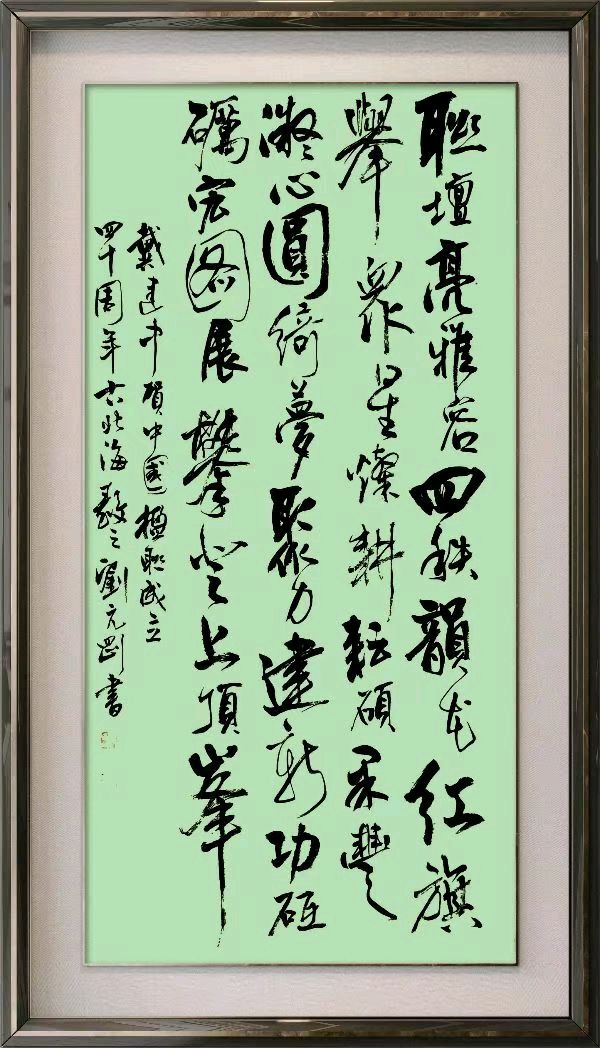 聯壇亮雅容四秩韻尤紅旗
舉眾星燦耕耘碩果豐
凝心圓綺夢聚力建新功砥
礪宏图展攀登上頂峯
戴建中賀中國楹聯成立
四十周年古北海敬之劉元剛書